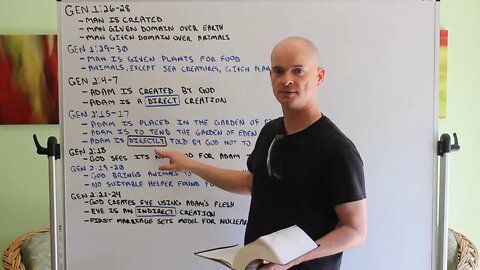 GEN 1:26-28
- MAN IS CREATED
- MAN GIVEN DOMAIN OVER EARTH
- MAN GIVEN DOMAIN OVER ANIMALS
GEN 1:29-30
- MAN IS GIVEN PLANTS FOR FOOD
- ANIMALS, EXCEPT SEA CREATURES, GIVEN PLAN
GEN 2:4-7
- ADAM IS CREATED BY GOD
- ADAM IS A DIRECT CREATION
GEN 2:15-17
- ADAM IS PLACED IN THE GARDEN OF
- ADAM IS TO TEND THE GARDEN OF EDEN
- ADAM IS DIRECTLY TOLD BY GOD NOT TO
GEN 2:18
- GOD SEES ITS FOR ADAM
GEN 2:19-20
- GOD BRINGS ANIMALS TO
- NO SUITABLE HELPER FOUND
GEN 2:21-24
- GOD CREATES EVE USING ADAM'S FLESH
- EVE IS AN INDIRECT CREATION
- FIRST MARRIAGE SETS MODEL FOR NUCLEAR